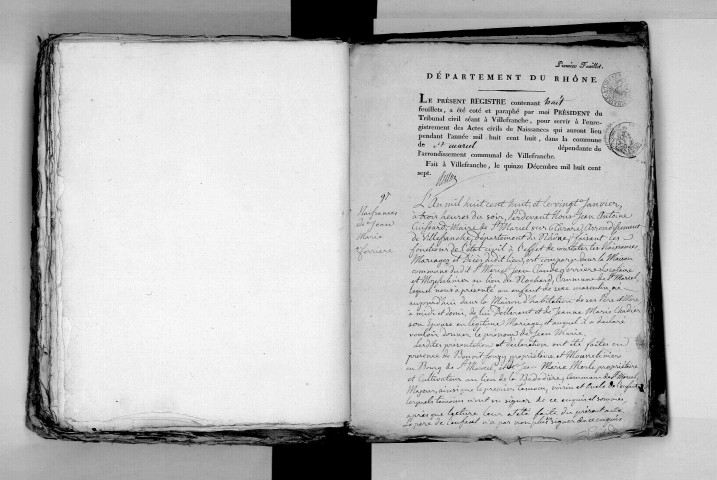 Premier Feuillet.
DÉPARTEMENT DU RHÔNE
LE PRÉSENT REGISTRE contenant huit
feuillets, a été coté et paraphé par moi PRÉSIDENT du
Tribunal civil séant à Villefranche, pour servir à l'enre-
gistrement des Actes civils de Naissances qui auront lieu
pendant l'année mil huit cent huit, dans la commune
de St marcel dépendante de
l'arrondissement communal de Villefranche.
Fait à Villefranche, le quinze Décembre mil huit cent
sept.
97
Naissance
de Jean
Marie
ferriere
L'An mil huit cent huit, et le vingt Janvier,
à trois heures du soir, Pardevant Nous Jean Antoine
Maire de St Marcel sur Arrondissement
de Villefranche, Département du Rhône, faisant les
fonctions de l'état civil à l'effet de constater les Naissances,
Mariages et Décès dudit lieu, est comparu dans la Maison
commune dudit St Marcel Jean Claude ferriere
et au lieu de Commune de St Marcel,
lequel nous a présenté un enfant de sexe masculin, né
aujourd'hui dans la Maison d'habitation de ses Père et Mère
à midi et demi, de lui Déclarant et de Jeanne Marie
son épouse en légitime Mariage, et auquel il a déclaré
vouloir donner le prénom de Jean Marie.
Lesdites présentation et déclaration ont été faites en
présence de Benoit propriétaire et
au Bourg de St Marcel, et de Jean Marie Merle propriétaire
et Cultivateur au lieu de la commune de St Marcel,
Majeur, ainsi que le premier témoin, de l'enfant
lesquels témoins n'ont su signer de ce enquis et sommés,
après que lecture leur a été faite du présent acte.
Le père de l'enfant n'a pas non plus signer de ce enquis